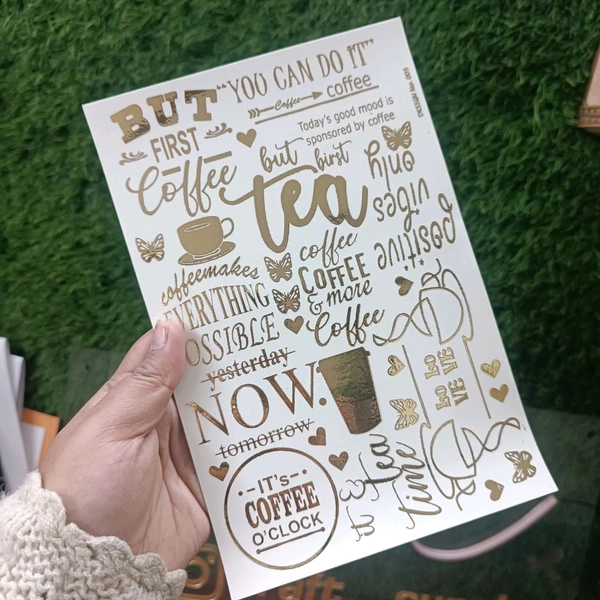 BUT
FIRST
Coffee
"YOU CAN DO IT"
Coffee
coffee
Today's good mood is
sponsored by coffee
but first
tea
positive
vibes
only
coffeemakes
EVERYTHING
OSSIBLE
coffee
COFFEE
& more
Coffee
yesterday
NOW.
tomorrow
LO
VE
LO
VE
-IT's-
COFFEE
O'CLOCK
Tea
time